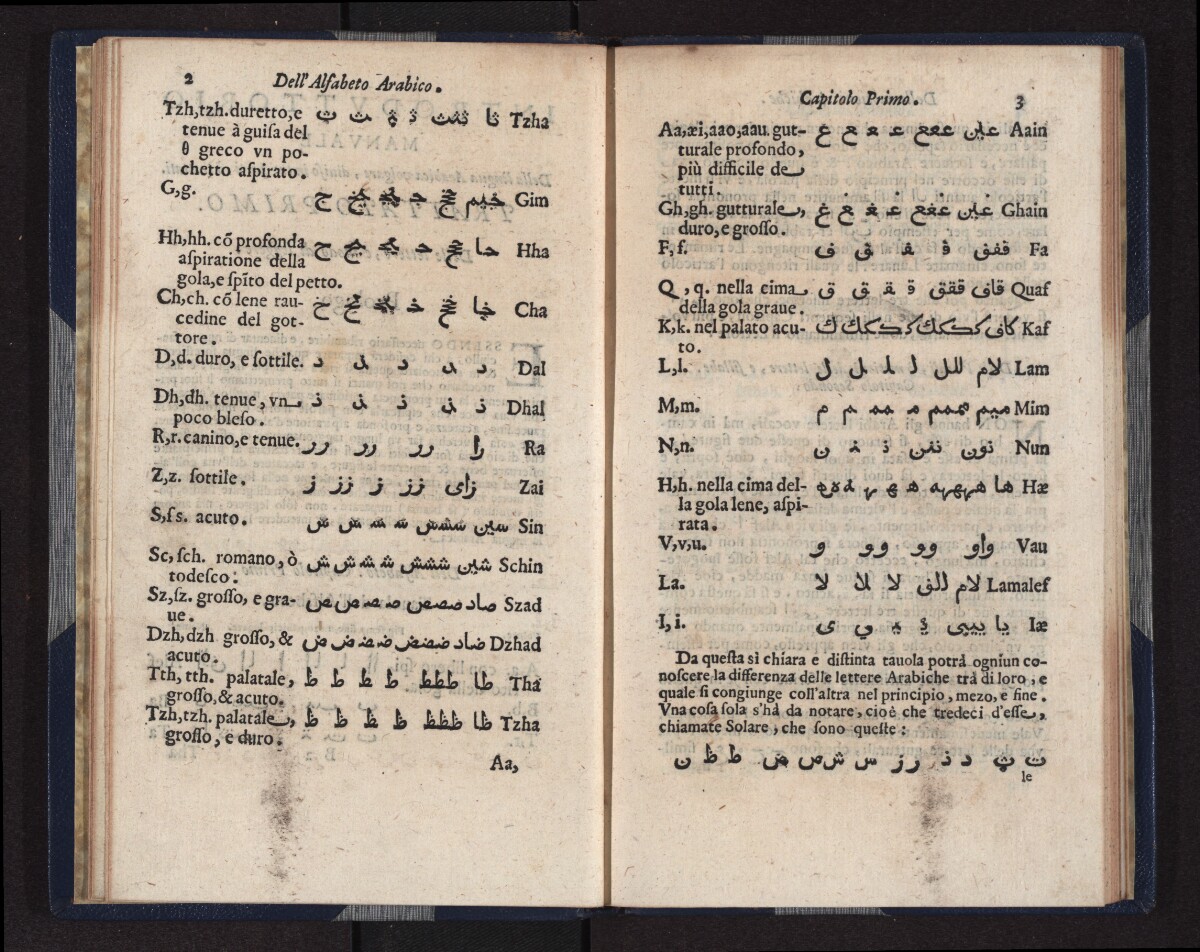 2 Dell'Alfabeto Arabico.
Tzh,tzh. duretto,e ثا ثثث Tzha
tenue à guiſa del
θ greco vn po-
chetto aſpirato.
G,g. جيم Gim
Hh,hh. cõ profonda حا Hha
aſpiratione della
gola,e ſpĩto del petto.
Ch,ch. cõ lene rau- خا Cha
cedine del got-
tore.
D,d. duro, e ſottile. د د Dal
Dh,dh. tenue, vn ذ ذ ذ Dhal
poco bleſo.
R,r. canino,e tenue. رر رر رر را Ra
Z,z. ſottile. ز زز ز زز زاى Zai
S,ſs. acuto. سين Sin
Sc,ſch. romano, ò ش ش ش ش ششش شين Schin
todeſco:
Sz,ſz. groſſo, e gra- ص ص ص ص صصص صاد Szad
ue.
Dzh,dzh groſſo, & ض ض ض ض ضضض ضاد Dzhad
acuto.
Tth, tth. palatale, ط ط ط ط ططط طا Tha
groſſo,& acuto.
Tzh,tzh. palatale, ظ ظ ظ ظ ظظظ ظا Tzha
groſſo, e duro.
Aa,
Capitolo Primo. 3
Aa,æi,aao,aau. gut- ععع عين Aain
turale profondo,
più difficile de
tutti.
Gh,gh. gutturale, غغغ غين Ghain
duro,e groſſo.
F, f. ف ف ف ف ففف Fa
Q, q. nella cima ق ق ق ق ققق قاف Quaf
della gola graue.
K,k. nel palato acu- ك ك ك ك ككك كاف Kaf
to.
L,l. ل ل ل ل للل لام Lam
M,m. م م م م ممم ميم Mim
N,n. ن ن ن ن ننن نون Nun
H,h. nella cima del- ههه ها Hæ
la gola lene, aſpi-
rata.
V,v,u. و وو وو واو Vau
La. لا لا لا لام الف Lamalef
I, i. ى ييى يا Iæ
Da queſta sì chiara e diſtinta tauola potrà ogniun co-
noſcere la differenza delle lettere Arabiche trà di loro, e
quale ſi congiunge coll'altra nel principio, mezo, e fine.
Vna coſa ſola s'hà da notare, cioè che tredeci d'eſſe,
chiamate Solare, che ſono queſte:
ت ث د ذ ر ز س ش ص ض ط ظ ن
le